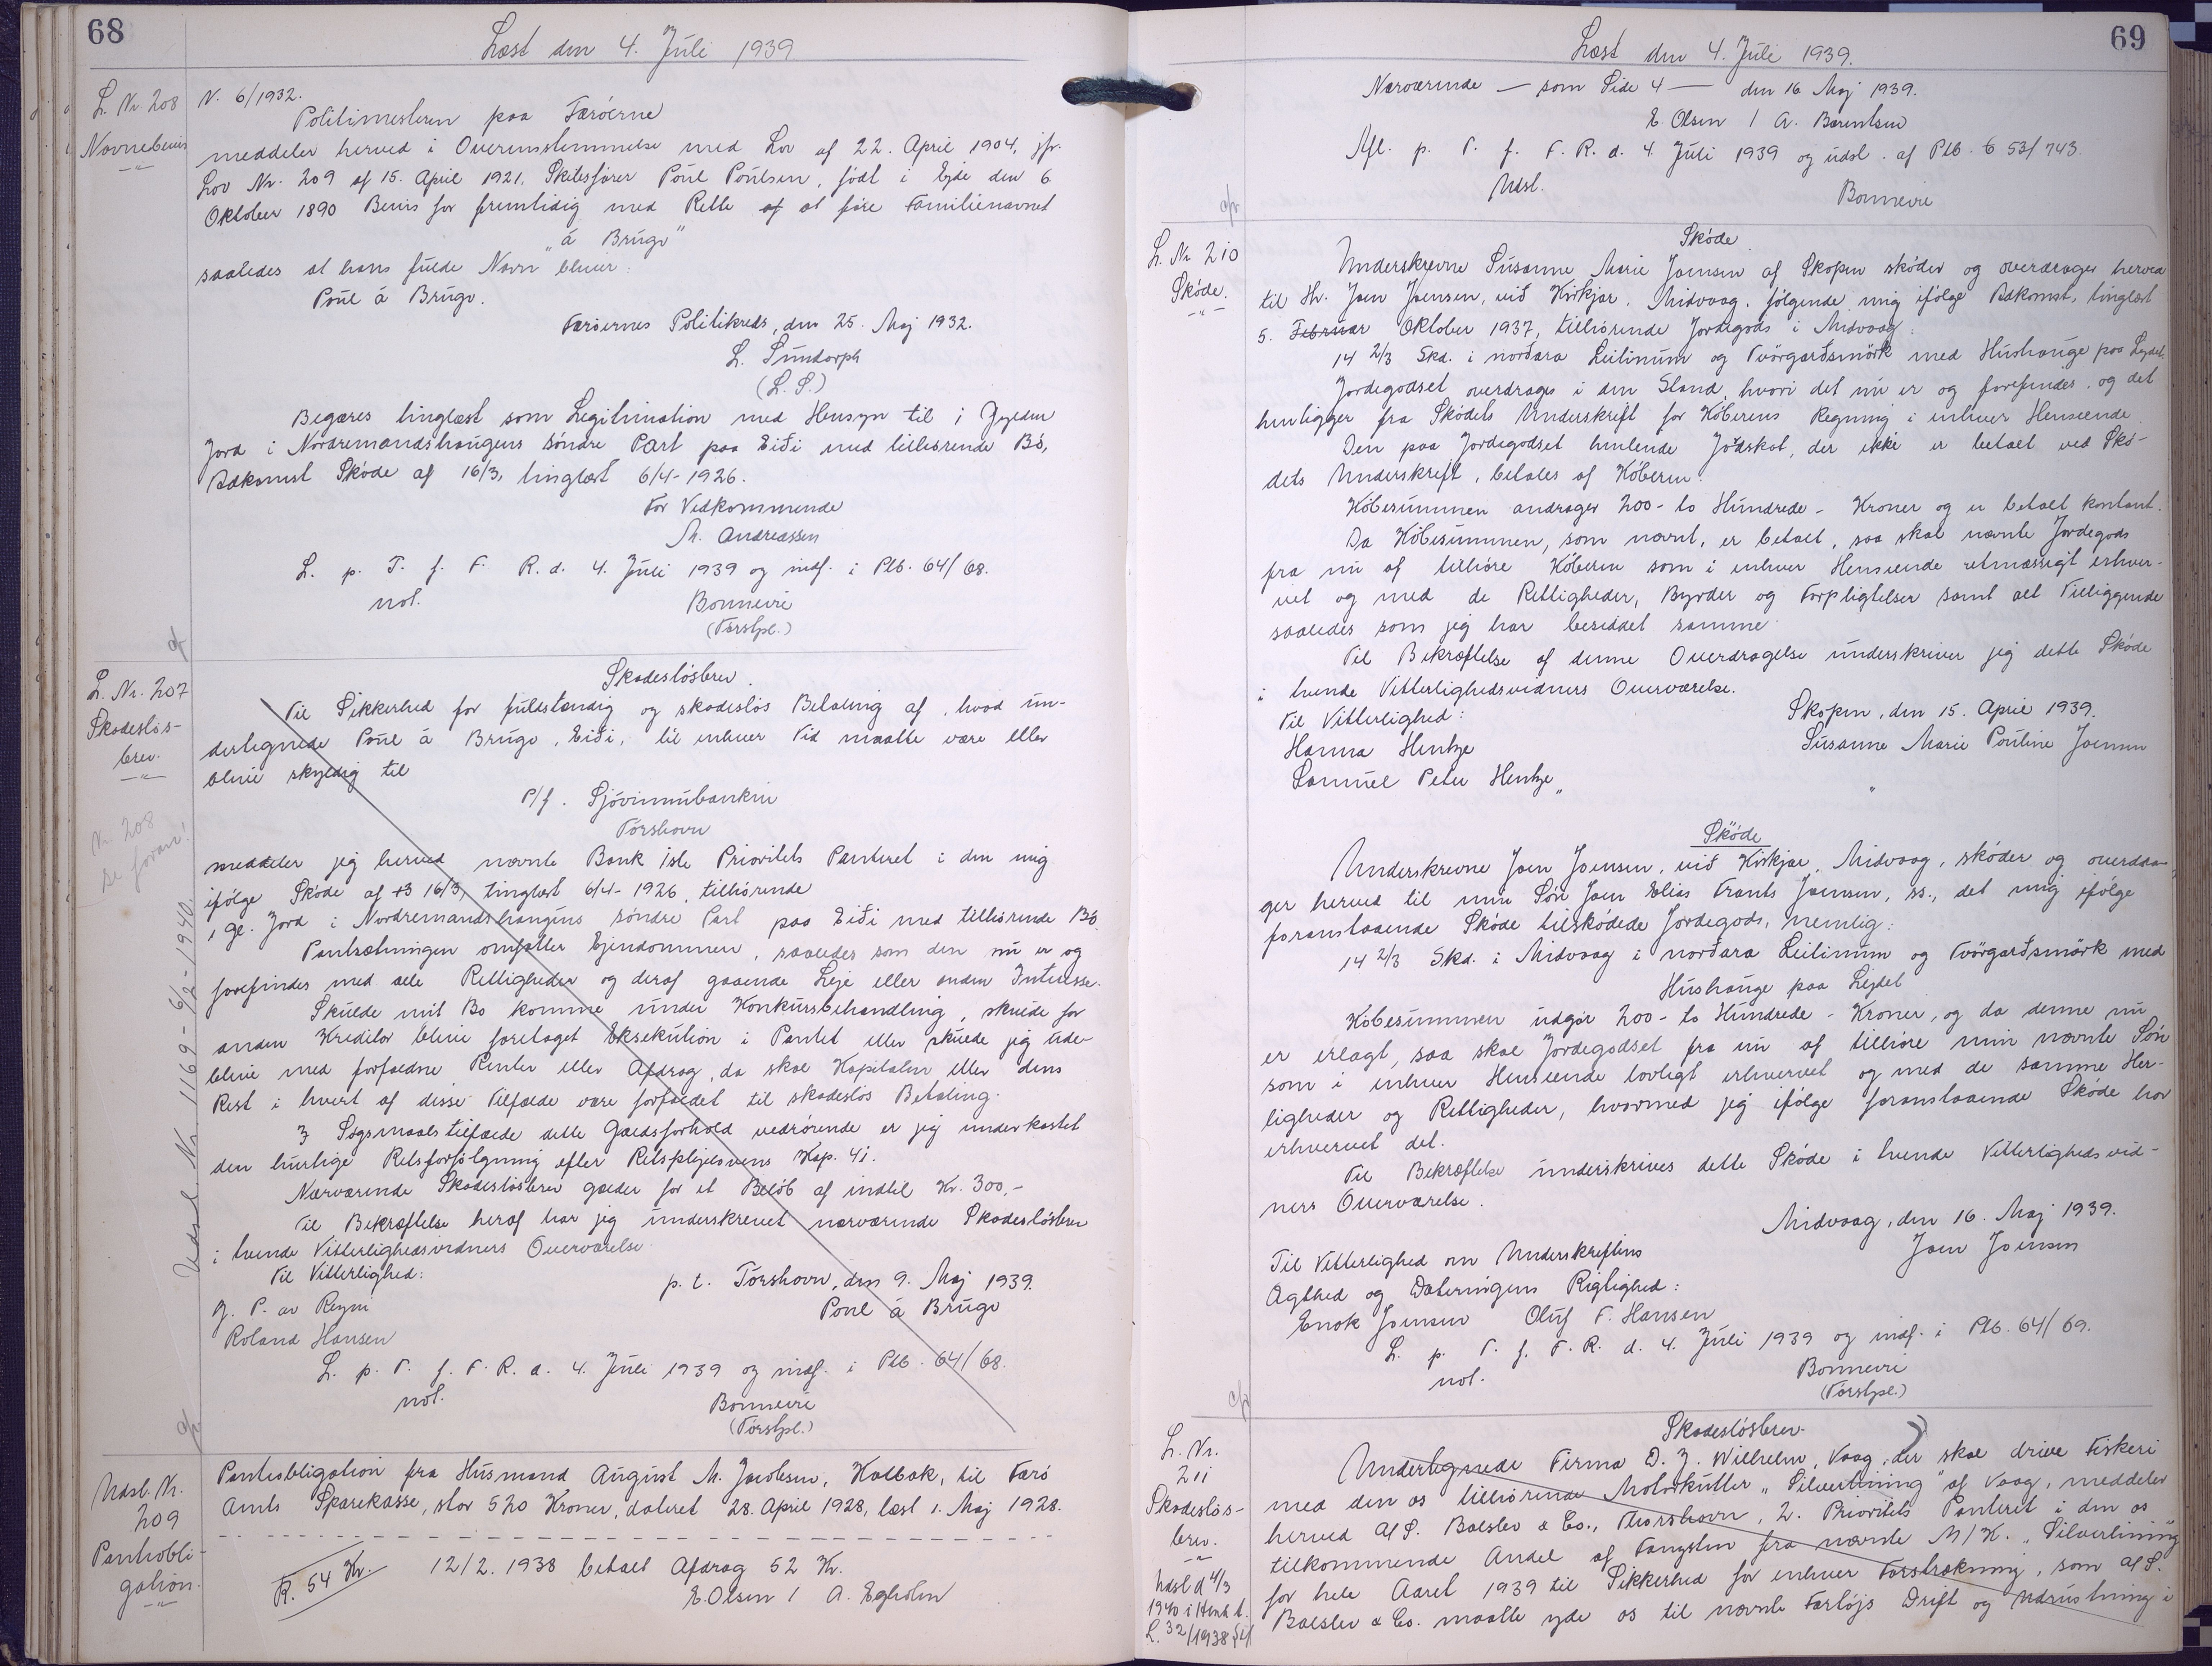 68
Læst den 4. Juli 1939
L. Nr. 208
Navnebevis
N. 6/1932.
Politimesteren paa Færöerne
meddeler herved i Overensstemmelse med Lov af 22. April 1904, jfr.
Lov Nr. 209 af 15. April 1921, Skibsfører Poul Poulsen, født i Ejde den 6
Oktober 1890 Bevis for fremtidig med Rette af at føre Familienavnet
"á Brúgv"
saaledes at hans fulde Navn bliver:
Poul á Brúgv.
Færöernes Politikreds, den 25. Maj 1932.
L. Sundorph
(L. S.)
Begæres tinglæst som Legitimation med Hensyn til 1 Gylden
Jord i Nordremandshaugens söndre Part paa Eiði med tilhørende Bö,
Adkomst Sköde af 16/3, tinglæst 6/4-1926.
For Vedkommende
M. Andreassen
L. p. T. f. F. R. d. 4. Juli 1939 og indf. i Ptb. 64/68.
not.
Bonnevie
(Torshpl.)
L. Nr. 207
Skadeslös-
brev.
Nr. 208
se foran!
Udsl. Nr. 1169 - 6/2-1940.
Skadeslösbrev.
Til Sikkerhed for fuldstændig og skadeslös Betaling af, hvad un-
dertegnede Poul á Brúgv, Eiði, til enhver Tid maatte være eller
blive skyldig til
P/f. Sjóvinnubankin
Tórshavn
meddeler jeg herved nævnte Bank 1ste Prioritets Panteret i den mig
ifölge Sköde af 13 16/3, tinglæst 6/4-1926, tilhørende
1 Gl. Jord i Nordremandshaugens söndre Part paa Eiði med tilhørende Bö.
Pantsætningen omfatter Ejendommen, saaledes som den nu er og
forefindes med alle Rettigheder og deraf gaaende Leje eller anden Interesse.
Skulde mit Bo komme under Konkursbehandling, skulde for
anden Kreditor blive foretaget Eksekution i Pantet eller skulde jeg ude-
blive med forfaldne Renter eller Afdrag, da skal Kapitalen eller dens
Rest i hvert af disse Tilfælde være forfaldet til skadeslös Betaling.
I Søgsmaalstilfælde dette Gældsforhold vedrörende er jeg underkastet
den hurtige Retsforfölgning efter Retsplejelovens Kap. 41.
Nærværende Skadeslösbrev gælder for et Belöb af indtil Kr. 300,-
Til Bekræftelse heraf har jeg underskrevet nærværende Skadeslösbrev
i tvende Vitterlighedsvidners Overværelse.
Til Vitterlighed:
p. t. Tórshavn, den 9. Maj 1939.
G. P. av Reyni
Poul á Brúgv
Roland Hansen
L. p. T. f. F. R. d. 4. Juli 1939 og indf. i Ptb. 64/68.
not.
Bonnevie
(Torshpl.)
Udsl. Nr.
209
Pantobli-
gation.
Pantobligation fra Husmand August M. Jacobsen, Kolbak, til Færö
Amts Sparekasse, stor 520 Kroner, dateret 28. April 1928, læst 1. Maj 1928.
R. 54 Kr.
12/2. 1938 betalt Afdrag 52 Kr.
E. Olsen / A. Egholm
69
Læst den 4. Juli 1939.
Nærværende — som Side 4 — den 16 Maj 1939.
E. Olsen / A. Barentsen
Afl. p. T. f. F. R. d. 4. Juli 1939 og udsl. af Ptb. 6 53/743.
Udsl.
Bonnevie
L. Nr. 210
Sköde.
Sköde
Underskrevne Susanne Marie Joensen af Skopen sköder og overdrager herved
til Hr. Joen Joensen, við Kirkjar, Midvaag, fölgende, mig ifölge Adkomst, tinglæst
5. Februar Oktober 1937, tilhörende Jordegods i Midvaag:
14 2/3 Skd. i norðara Leitinum og Tvörgarðsmörk med Hushauge paa Lejdet.
Jordegodset overdrages i den Stand, hvori det nu er og forefindes, og det
henligger fra Sködets Underskrift for Köberens Regning i enhver Henseende.
Den paa Jordegodset hvilende Jordskat, der ikke er betalt ved Skö-
dets Underskrift, betales af Köberen.
Köbesummen andrager 200 - to Hundrede - Kroner og er betalt kontant.
Da Köbesummen, som nævnt, er betalt, saa skal nævnte Jordegods
fra nu af tilhöre Köberen som i enhver Henseende retmæssigt erhver-
vet og med de Rettigheder, Byrder og Forpligtelser samt alt Tilliggende
saaledes som jeg har besiddet samme.
Til Bekræftelse af denne Overdragelse underskriver jeg dette Sköde
i tvende Vitterlighedsvidners Overværelse.
Til Vitterlighed:
Skopen, den 15. April 1939.
Hanna Hentze
Susanne Marie Pouline Joensen
Samuel Peter Hentze
Sköde
Underskrevne Joen Joensen, við Kirkjar, Midvaag, sköder og overdra-
ger herved til min Sön Joen Elias Frants Joensen, ss., det mig ifölge
foranstaaende Sköde tilsködede Jordegods, nemlig:
14 2/3 Skd. i Midvaag i norðara Leitinum og Tvörgarðsmörk med
Hushauge paa Lejdet
Köbesummen udgör 200 - to Hundrede - Kroner, og da denne nu
er erlagt, saa skal Jordegodset fra nu af tilhöre min nævnte Sön
som i enhver Henseende lovligt erhvervet og med de samme Her-
ligheder og Rettigheder, hvormed jeg ifölge foranstaaende Sköde har
erhvervet det.
Til Bekræftelse underskrives dette Sköde i tvende Vitterlighedsvid-
ners Overværelse.
Midvaag, den 16. Maj 1939.
Joen Joensen
Til Vitterlighed om Underskriftens
Ægthed og Dateringens Rigtighed:
Enok Joensen Oluf F. Hansen
L. p. T. f. F. R. d. 4. Juli 1939 og indf. i Ptb. 64/69.
not.
Bonnevie
(Torshpl.)
L. Nr.
211
Skadeslös-
brev.
Udsl d 4/3
1940
L. 32/1938
Skadeslösbrev.
Undertegnede Firma D. J. Wilhelm, Vaag, der skal drive Fiskeri
med den os tilhörende Motorkutter "Silverlining" af Vaag, meddeler
herved A/S. Balslev & Co., Thorshavn, 2. Prioritets Panteret i den os
tilkommende Andel af Fangsten fra nævnte M/K. "Silverlining"
for hele Aaret 1939 til Sikkerhed for enhver Forstrækning, som A/S.
Balslev & Co. maatte yde os til nævnte Fartöjs Drift og Udrustning i